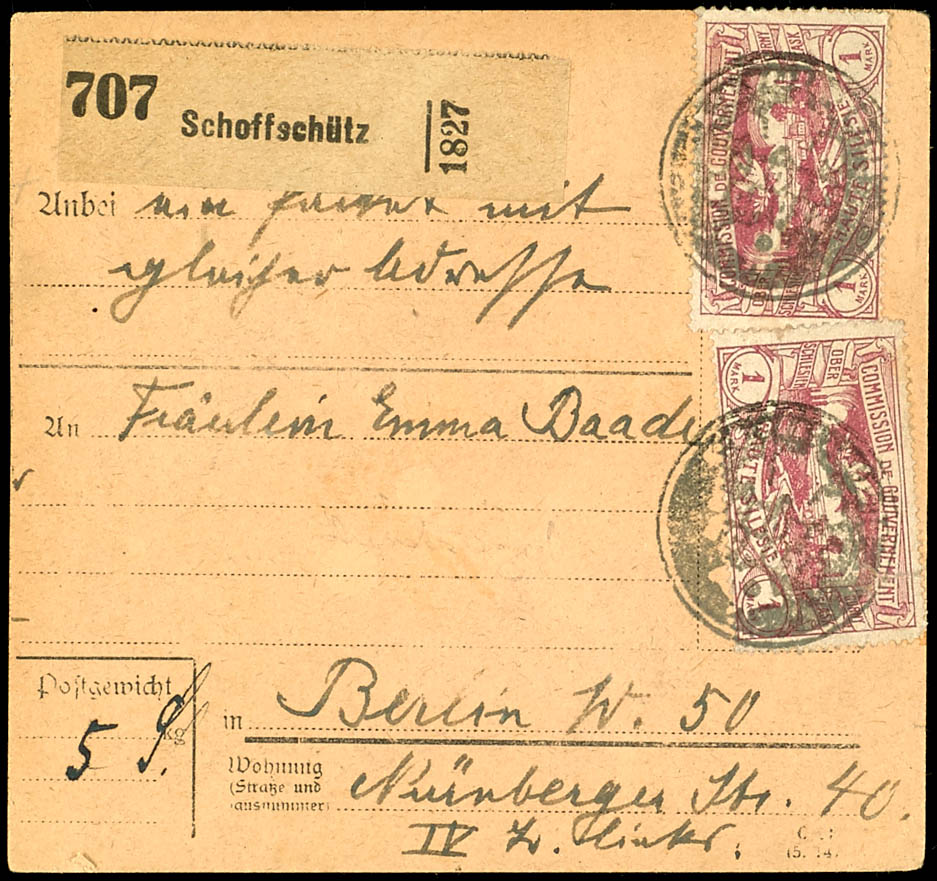 707 Schoffschütz 1827
Anbei ein [...] mit
gleicher Adresse
An Fräulein Emma Baade
Postgewicht
5 kg
in Berlin W. 50
Wohnung
(Straße und
Hausnummer)
Nürnberger Str. 40.
IV Tr. links.
1 MARK
COMMISSION DE GOUVERNEMENT
HAUTE SILESIE
OBER
SCHLESIEN
1 MARK
1 MARK
COMMISSION DE GOUVERNEMENT
HAUTE SILESIE
OBER
SCHLESIEN
1